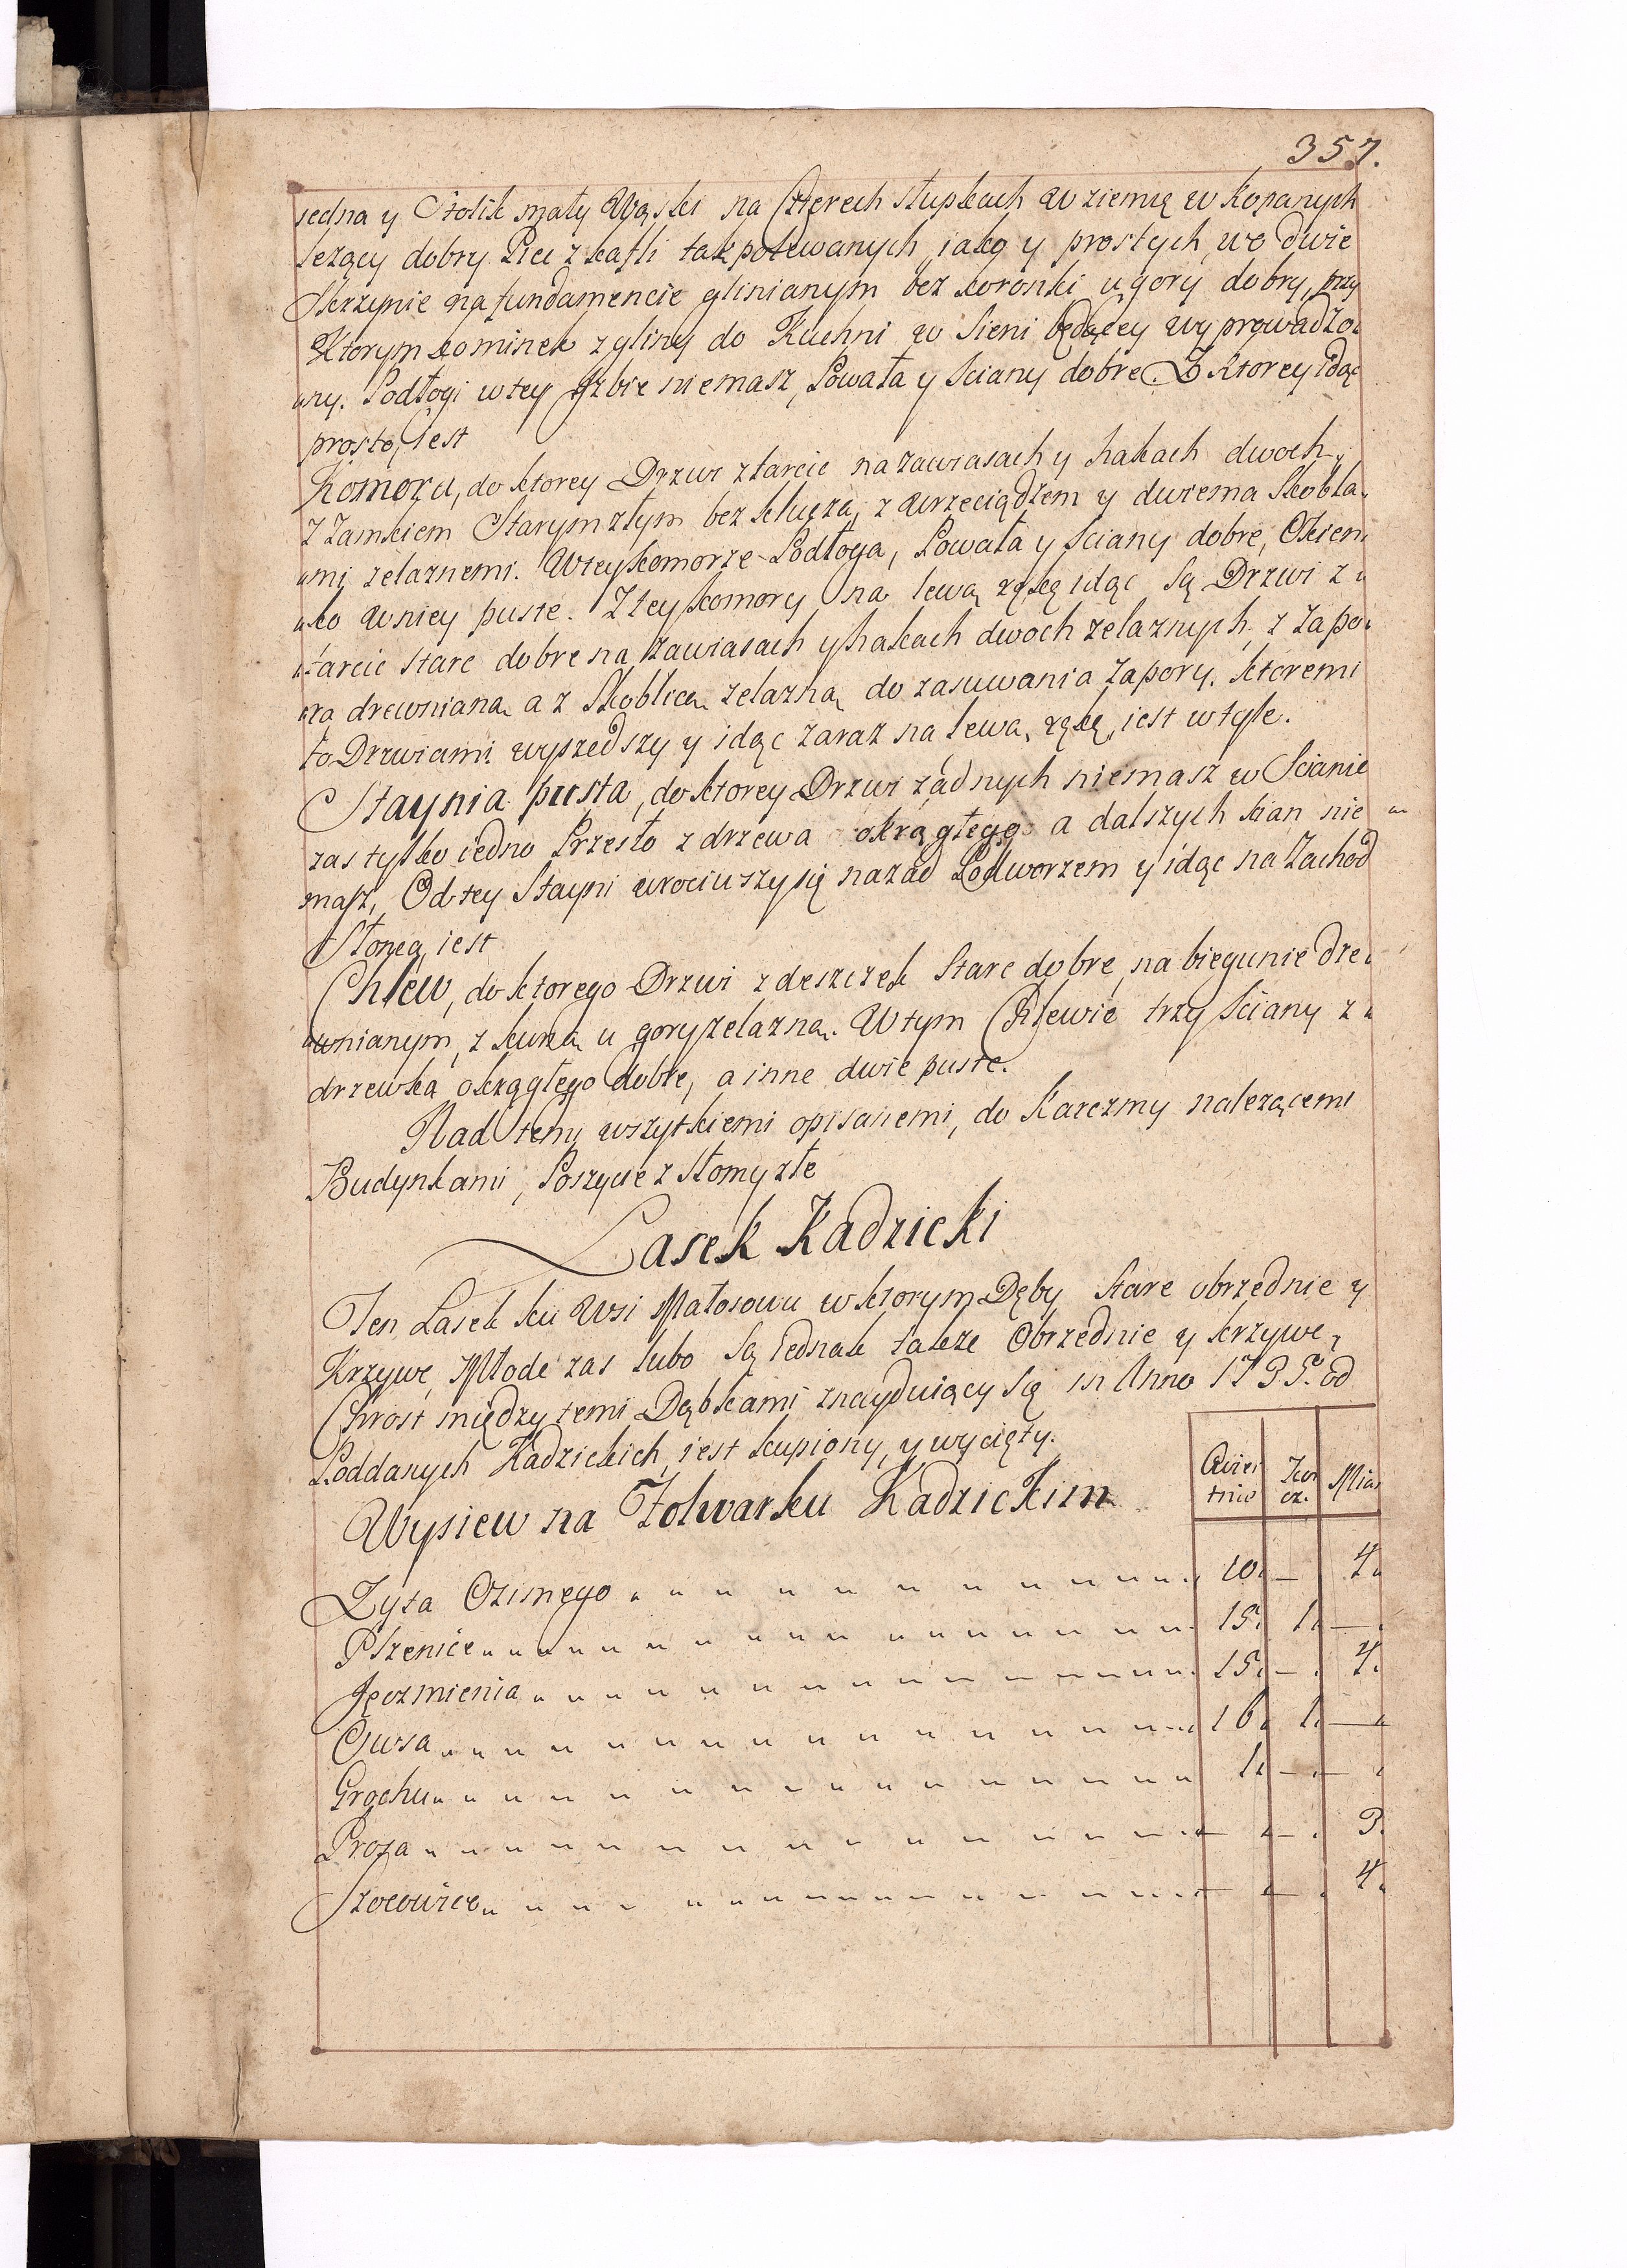 357.
iedna y Stolik mały Wąski na Czterech słupkach w ziemię wkopanych
leżący dobry Piec z kafli tak polewanych, iako y prostych, we dwie
Skrzynie na fundamencie glinianym bez koronki u gory dobry, przy
Ktorym kominek z gliny do Kuchni w Sieni będącey wyprowadzo„
„ny. Podłogi w tey Izbie niemasz, Powała y Sciany dobre. Z Ktorey idąc
prosto, iest
Komora, do ktorey Drzwi z tarcic na zawiasach y hakach dwoch,
z Zamkiem Starym złym bez klucza, z wrzeciądzem y dwiema Skobla„
„mi zelaznemi. W tey komorze Podłoga, Powała y Sciany dobre, Okien„
„ko w niey puste. Z tey komory na lewą rękę idąc są Drzwi z„
„tarcic stare dobre na zawiasach y hakach dwoch zelaznych, z Zapo„
„rą drewnianą a z Skoblicą zelazną do zasuwania Zapory. ktoremi
to Drzwiami wyszedszy y idąc zaraz na lewą rękę, iest w tyle.
Staynia pusta, do ktorey Drzwi żadnych niemasz w Scianie
zas tylko iedno Przesło z drzewa okrągłego a dalszych scian nie„
masz, Od tey Stayni wrociwszy się nazad Podworzem y idąc na Zachod
Słonca, iest
Chlew, do ktorego Drzwi z deszczek Stare dobre, na biegunie dre„
„wnianym, z kuną u gory zelazną. W tym Chlewie trzy Sciany z„
drzewka okrągłego dobre, a inne dwie puste.
Nad temi wszytkiemi opisanemi, do Karczmy nalezącemi
Budynkami, Poszycie z Słomy złe
Lasek Kadzicki
Ten Lasek ku Wsi Małoszowu w ktorym Dęby Stare obrzednie y
Krzywe, Młode zas lubo są iednak takze Obrzednie y krzywe,
Chrost między temi Dąbkami znayduiący się in Anno 1735. od
Poddanych Kadzickich, iest kupiony, y wycięty.
Wysiew na Folwarku Kadzickim
Cwier tnie Kor cz. Miar
Zyta Ozimego 10. — 4.
Pszenice 15. 1. —
Jęczmienia 15. — 4.
Owsa 16. 1. —
Grochu 1. — —
Prosa — — 3.
Szocowice — — 4.